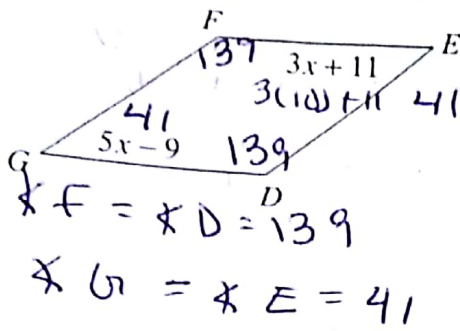 F
137
3x + 11
E
3(10) + 11
41
41
5x − 9
139
G
D
∡F = ∡D = 139
∡G = ∡E = 41